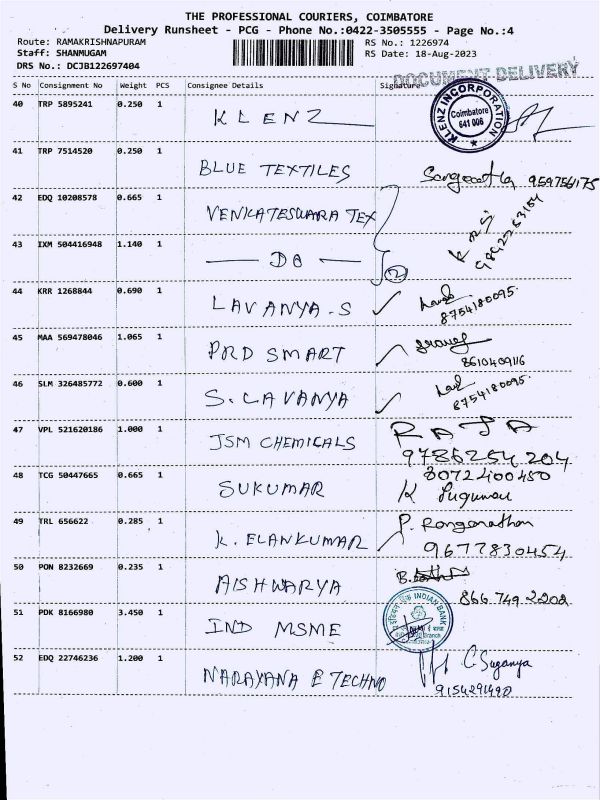 THE PROFESSIONAL COURIERS, COIMBATORE
Delivery Runsheet - PCG - Phone No.:0422-3505555 - Page No.:4
Route: RAMAKRISHNAPURAM
Staff: SHANMUGAM
DRS No.: DCJB122697404
RS No.: 1226974
RS Date: 18-Aug-2023
DOCUMENT DELIVERY
S No Consignment No Weight PCS Consignee Details Signature
40 TRP 5895241 0.250 1 KLENZ
KLENZ INCORPORATION
Coimbatore
641 006
41 TRP 7514520 0.250 1 BLUE TEXTILES
42 EDQ 10208578 0.665 1 VENKATESWARA TEX
43 IXM 504416948 1.140 1 — DO — 2
44 KRR 1268844 0.690 1 LAVANYA.S
8754180095
45 MAA 569478046 1.065 1 PRD SMART
8610409116
46 SLM 326485772 0.600 1 S.LAVANYA
8754180095
47 VPL 521620186 1.000 1 JSM CHEMICALS RAJA
9786254204
48 TCG 50447665 0.665 1 SUKUMAR 8072400450
49 TRL 656622 0.285 1 K. ELANKUMAR P. Ranganathan
9677830454
50 PON 8232669 0.235 1 AISHWARYA
866 749 2202
51 PDK 8166980 3.450 1 IND MSME
INDIAN BANK
Branch
52 EDQ 22746236 1.200 1 NARAYANA E TECHNO C.Suganya
9154291490